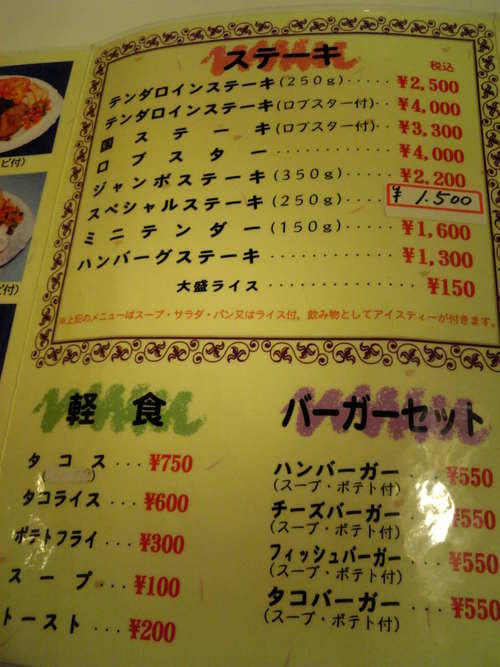 ステーキ
税込
テンダロインステーキ(250g)·····¥2,500
テンダロインステーキ(ロブスター付)··¥4,000
国ステーキ(ロブスター付)···¥3,300
ロブスター·············¥4,000
ジャンボステーキ(350g)·····¥2.200
スペシャルステーキ(250g)····¥1.500
ミニテンダー(150g)·····¥1,600
ハンバーグステーキ············¥1,300
大盛ライス·············¥150
※上記のメニューはスープ・サラダ・パン又はライス付。飲み物としてアイスティーが付きます。
ピ付)
ピ付)
軽食
タコス···¥750
タコライス···¥600
ポテトフライ···¥300
スープ···¥100
トースト···¥200
バーガーセット
ハンバーガー····¥550
(スープ・ポテト付)
チーズバーガー····¥550
(スープ・ポテト付)
フィッシュバーガー···¥550
(スープ・ポテト付)
タコバーガー····¥550
(スープ・ポテト付)